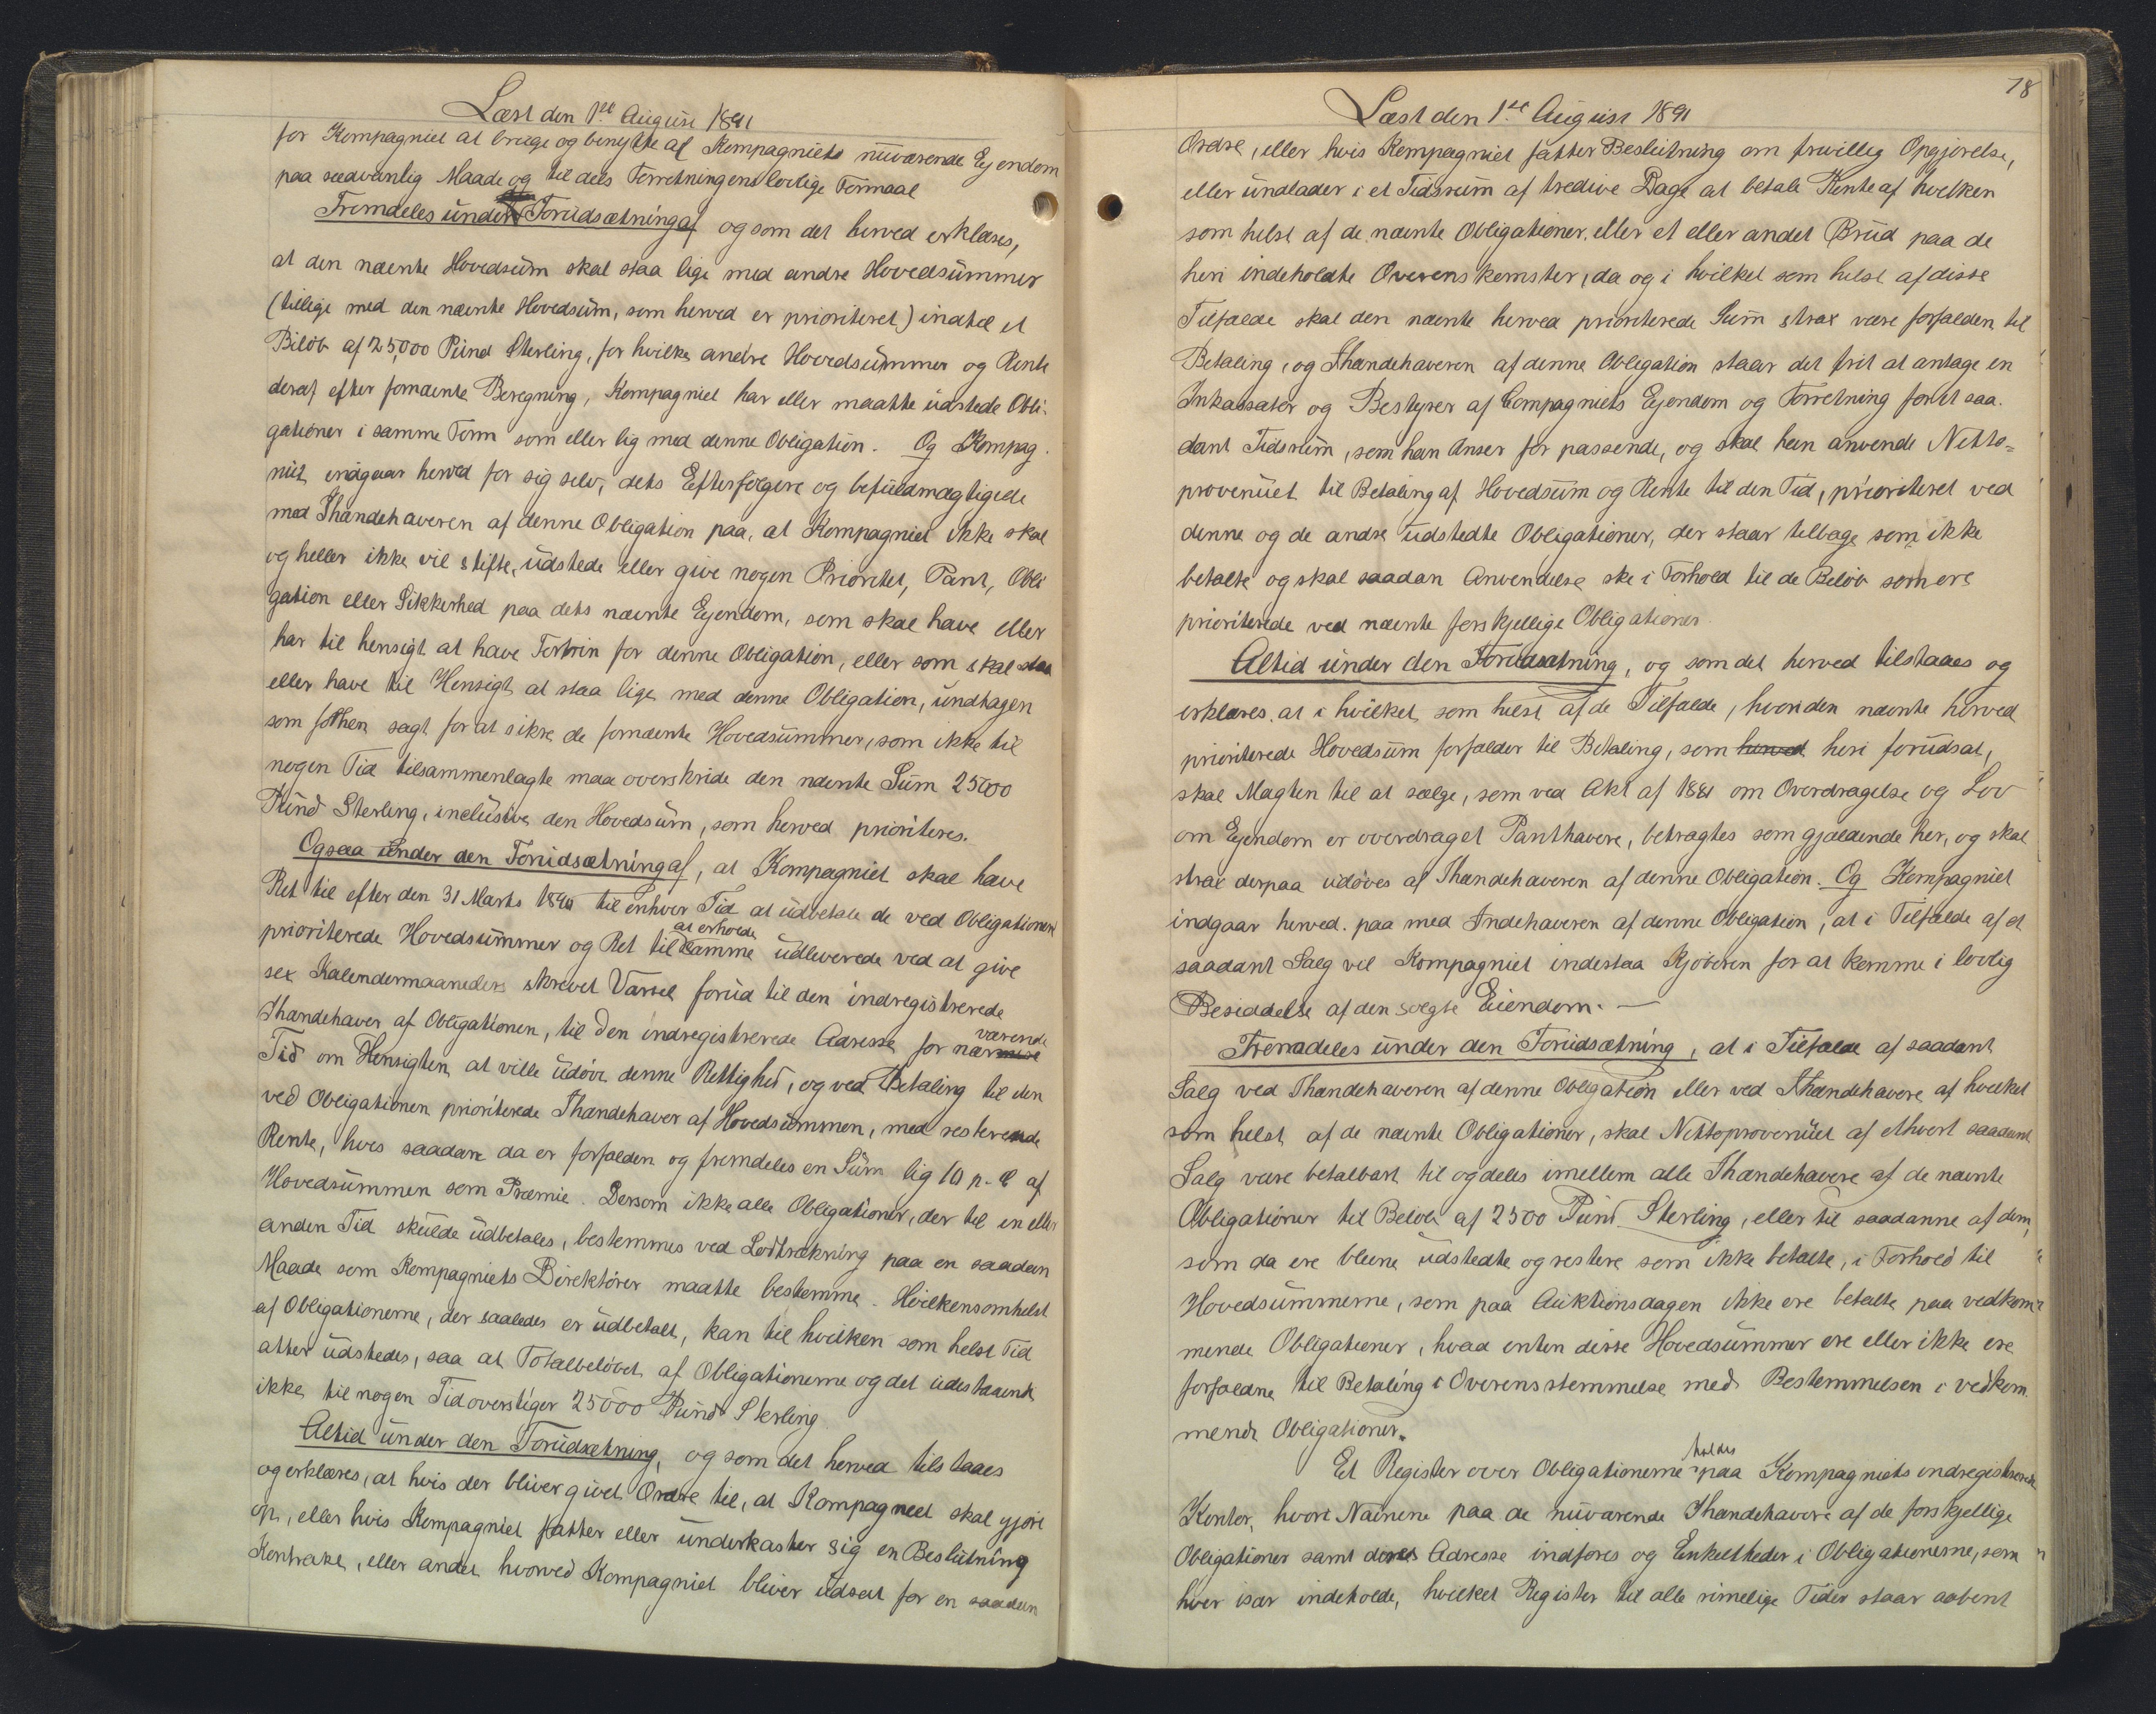 Læst den 1ste August 1891
for Kompagniet at bruge og benytte af Kompagniets nuværende Ejendom
paa sædvanlig Maade og til dets Forretningens lovlige Formaal
Fremdeles under Forudsætning af og som det herved erklæres,
at den nævnte Hovedsum skal staa lige med andre Hovedsummer
(tillige med den nævnte Hovedsum, som herved er prioriteret) indtil et
Beløb af 25,000 Pund Sterling, for hvilke andre Hovedsummer og Rente
deraf efter fornævnte Beregning, Kompagniet har eller maatte udstede Obli-
gationer i samme Form som eller lig med denne Obligation. Og Kompag-
niet indgaar herved for sig selv, dets Efterfølgere og befuldmægtigede
med Ihændehaveren af denne Obligation paa, at Kompagniet ikke skal
og heller ikke vil stifte, udstede eller give nogen Prioritet, Pant, Obli
gation eller Sikkerhed paa dets nævnte Ejendom, som skal have eller
har til hensigt at have Fortrin for denne Obligation, eller som skal staa
eller have til Hensigt at staa lige med denne Obligation, undtagen
som forhen sagt for at sikre de fornævnte Hovedsummer, som ikke til
nogen Tid tilsammenlagte maa overskride den nævnte Sum 25000
Pund Sterling, inclusive den Hovedsum, som herved prioriteres.
Ogsaa under den Forudsætning af, at Kompagniet skal have
Ret til efter den 31 Marts 1890 til enhver Tid at udbetale de ved Obligationen
prioriterede Hovedsummer og Ret til at erholde samme udleverede ved at give
sex Kalendermaaneders skrevet Varsel forud til den indregistrerede
Ihændehaver af Obligationen, til den indregistrerede Adresse for nærværende
Tid om Hensigten at ville udøve denne Rettighed, og ved Betaling til den
ved Obligationen prioriterede Ihændehaver af Hovedsummen, med resterende
Rente, hvis saadan da er forfalden og fremdeles en Sum lig 10 p. C af
Hovedsummen som Præmie. Dersom ikke alle Obligationer, der til en eller
anden Tid skulde udbetales, bestemmes ved Lodtrækning paa en saadan
Maade som Kompagniets Direktører maatte bestemme. Hvilkensomhelst
af Obligationerne, der saaledes er udbetalt, kan til hvilken som helst Tid
atter udstedes, saa at Totalbeløbet af Obligationerne og det udestaaende
ikke til nogen Tid overstiger 25000 Pund Sterling
Altid under den Forudsætning, og som det herved tilstaaes
og erklæres, at hvis der bliver givet Ordre til, at Kompagniet skal gjøre
op, eller hvis Kompagniet fatter eller underkaster sig en Beslutning
Kontrakt, eller andet hvorved Kompagniet bliver udsat for en saadan
78
Læst den 1ste August 1891
Ordre, eller hvis Kompagniet fatter Beslutning om frivillig Opgjørelse,
eller undlader i et Tidsrum af tredive Dage at betale Rente af hvilken
som helst af de nævnte Obligationer, eller et eller andet Brud paa de
heri indeholdte Overenskomster, da og i hvilket som helst af disse
Tilfælde skal den nævnte herved prioriterede Sum strax være forfalden til
Betaling, og Ihændehaveren af denne Obligation staar det frit at antage en
Inkassator og Bestyrer af Compagniets Ejendom og Forretning for et saa-
dant Tidsrum, som han anser for passende, og skal han anvende Netto-
provenuet til Betaling af Hovedsum og Rente til den Tid, prioriteret ved
denne og de andre udstedte Obligationer, der staar tilbage som ikke
betalte og skal saadan Anvendelse ske i Forhold til de Beløb som ere
prioriterede ved nævnte forskjellige Obligationer.
Altid under den Forudsætning, og som det herved tilstaaes og
erklæres, at i hvilket som helst af de Tilfælde, hvori den nævnte herved
prioriterede Hovedsum forfalder til Betaling, som herved heri forudsat,
skal Magten til at sælge, som ved Akt af 1881 om Overdragelse og Lov
om Ejendom er overdraget Panthavere, betragtes som gjældende her, og skal
strax derpaa udøves af Ihændehaveren af denne Obligation. Og Kompagniet
indgaar herved. paa med Indehaveren af denne Obligation, at i Tilfælde af et
saadant Salg vil Kompagniet indestaa Kjøberen for at komme i lovlig
Besiddelse af den solgte Eiendom. —
Fremdeles under den Forudsætning, at i Tilfælde af saadant
Salg ved Ihændehaveren af denne Obligation eller ved Ihændehavere af hvilket
som helst af de nævnte Obligationer, skal Nettoprovenuet af ethvert saadant
Salg være betalbart til og deles imellem alle Ihændehavere af de nævnte
Obligationer til Beløb af 2500 Pund Sterling, eller til saadanne af dem,
som da ere blevne udstedte og restere som ikke betalte, i Forhold til
Hovedsummerne, som paa Auktionsdagen ikke ere betalte paa vedkom-
mende Obligationer, hvad enten disse Hovedsummer ere eller ikke ere
forfaldne til Betaling i Overensstemmelse med Bestemmelsen i vedkom
mende Obligationer.
Et Register over Obligationerne holdes paa Kompagniets indregistrerede
Kontor, hvori Navnene paa de nuværende Ihændehavere af de forskjellige
Obligationer samt deres Adresse indføres og Enkeltheder i Obligationerne, som
hver især indeholde, hvilket Register til alle rimelige Tider staar aabent